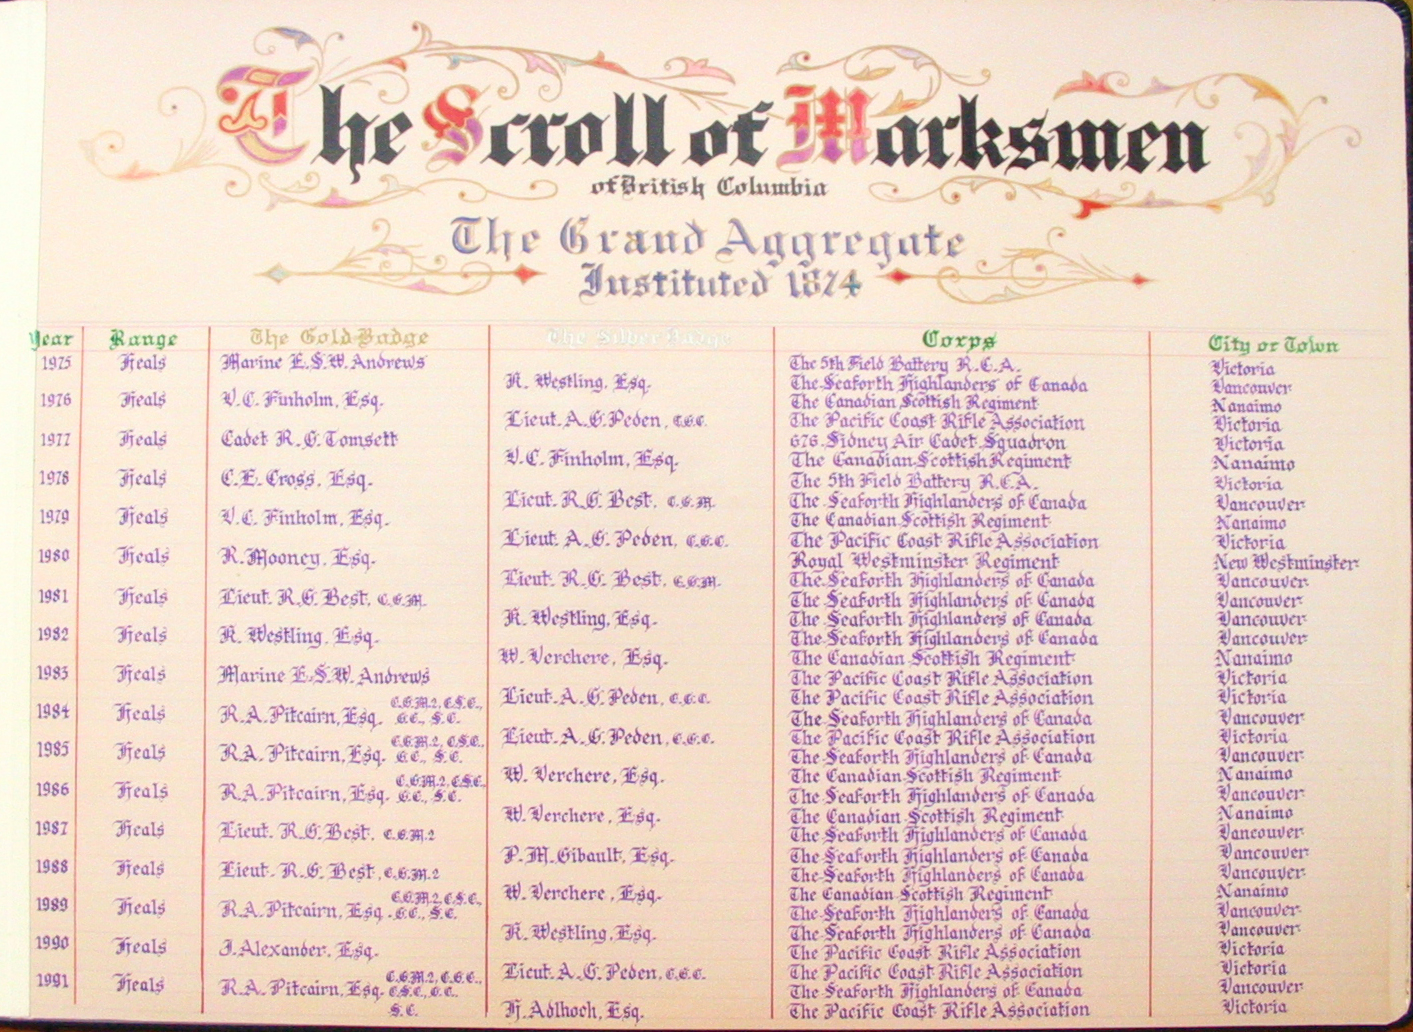 The Scroll of Marksmen
of British Columbia
The Grand Aggregate
Instituted 1874
Year Range The Gold Badge The Silver Badge Corps City or Town
1975 Heals Marine E.S.W. Andrews The 5th Field Battery R.C.A. Victoria
K. Westling, Esq. The Seaforth Highlanders of Canada Vancouver
1976 Heals V.C. Finholm, Esq. The Canadian Scottish Regiment Nanaimo
Lieut. A.G. Peden, C.G.C. The Pacific Coast Rifle Association Victoria
1977 Heals Cadet R.G. Tomsett 676 Sidney Air Cadet Squadron Victoria
V.C. Finholm, Esq. The Canadian Scottish Regiment Nanaimo
1978 Heals C.E. Cross, Esq. The 5th Field Battery R.C.A. Victoria
Lieut. R.G. Best, C.G.M. The Seaforth Highlanders of Canada Vancouver
1979 Heals V.C. Finholm, Esq. The Canadian Scottish Regiment Nanaimo
Lieut. A.G. Peden, C.G.C. The Pacific Coast Rifle Association Victoria
1980 Heals R. Mooney, Esq. Royal Westminster Regiment New Westminster
Lieut. R.G. Best, C.G.M. The Seaforth Highlanders of Canada Vancouver
1981 Heals Lieut. R.G. Best, C.G.M. The Seaforth Highlanders of Canada Vancouver
K. Westling, Esq. The Seaforth Highlanders of Canada Vancouver
1982 Heals K. Westling, Esq. The Seaforth Highlanders of Canada Vancouver
W. Verchere, Esq. The Canadian Scottish Regiment Nanaimo
1983 Heals Marine E.S.W. Andrews The Pacific Coast Rifle Association Victoria
Lieut. A.G. Peden, C.G.C. The Pacific Coast Rifle Association Victoria
1984 Heals R.A. Pitcairn, Esq. C.G.M.2, C.S.C., G.C., S.C. The Seaforth Highlanders of Canada Vancouver
Lieut. A.G. Peden, C.G.C. The Pacific Coast Rifle Association Victoria
1985 Heals R.A. Pitcairn, Esq. C.G.M.2, C.S.C., G.C., S.C. The Seaforth Highlanders of Canada Vancouver
W. Verchere, Esq. The Canadian Scottish Regiment Nanaimo
1986 Heals R.A. Pitcairn, Esq. C.G.M.2, C.S.C., G.C., S.C. The Seaforth Highlanders of Canada Vancouver
W. Verchere, Esq. The Canadian Scottish Regiment Nanaimo
1987 Heals Lieut. R.G. Best, C.G.M.2 The Seaforth Highlanders of Canada Vancouver
P.M. Gibault, Esq. The Seaforth Highlanders of Canada Vancouver
1988 Heals Lieut. R.G. Best, C.G.M.2 The Seaforth Highlanders of Canada Vancouver
W. Verchere, Esq. The Canadian Scottish Regiment Nanaimo
1989 Heals R.A. Pitcairn, Esq. C.G.M.2, C.S.C., G.C., S.C. The Seaforth Highlanders of Canada Vancouver
K. Westling, Esq. The Seaforth Highlanders of Canada Vancouver
1990 Heals J. Alexander, Esq. The Pacific Coast Rifle Association Victoria
Lieut. A.G. Peden, C.G.C. The Pacific Coast Rifle Association Victoria
1991 Heals R.A. Pitcairn, Esq. C.G.M.2, C.G.C., C.S.C., G.C., S.C. The Seaforth Highlanders of Canada Vancouver
H. Adlhoch, Esq. The Pacific Coast Rifle Association Victoria